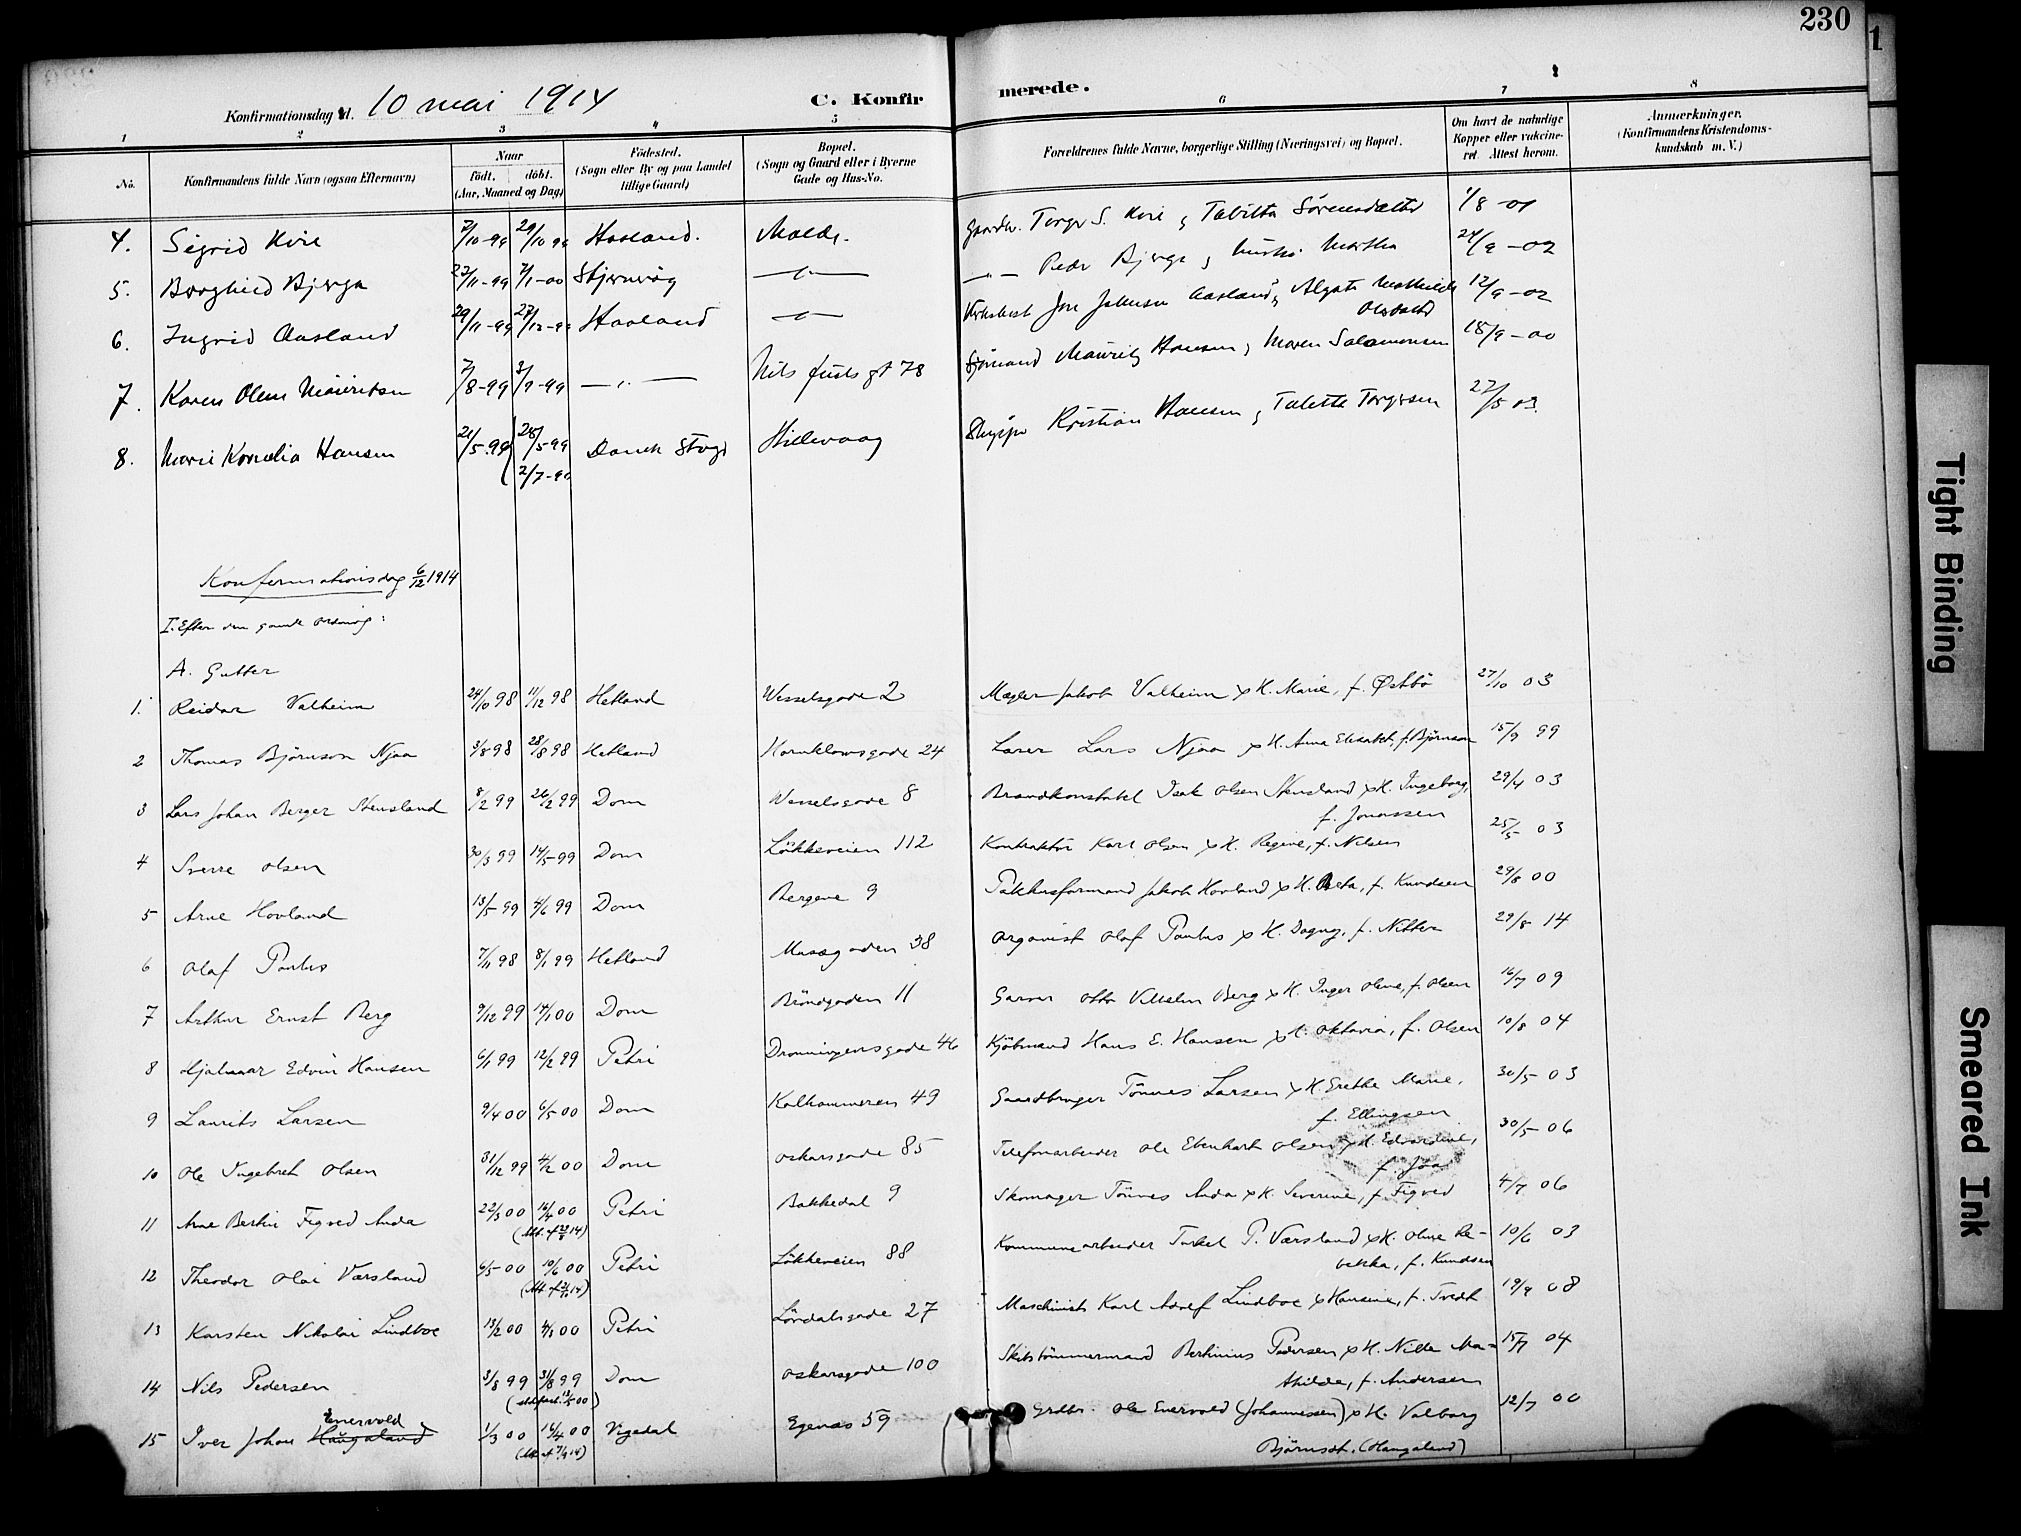 230
1
Konfirmationsdag d. 10 mai 1914
C. Konfirmerede.
1 2 3 4 5 6 7 8
No.
Konfirmandens fulde Navn (ogsaa Efternavn)
Naar
født. døbt.
(Aar, Maaned og Dag)
Födested.
(Sogn eller By og paa Landet
tillige Gaard)
Bopæl.
(Sogn og Gaard eller i Byerne
Gade og Hus-No.
Forældrenes fulde Navne, borgerlige Stilling (Næringsvei) og Bopæl.
Om havt de naturlige
Kopper eller vakcine-
ret. Attest herom.
Anmærkninger.
(Konfirmandens Kristendoms-
kundskab m. V.)
4. Sigrid 7/10-99 29/10 99 Haaland. Torger S. Tabitta Sörensdatter 1/8-01
5. Borghild Bjerga 22/11-99 7/1-00 Stjernerøy —"— —"— Peder Bjerga, hustru Martha 24/9-02
6. Ingrid Aasland 29/11-99 27/12-99 Haaland —"— Aasland, Mathilde 12/9-02
Olsdatter
7. Karen Olene Mauritsen 7/8-99 3/9-99 —"— Nils Juels gt 78 Sjömand Mauritz Hansen, Maren Salomonsen 18/9-00
8. Marie Kornelia Hansen 21/5.99 28/5-99 Hillevaag Kristian Hansen, Tabitta Torgersen 27/5 03.
2/7-99
Konfirmationsdag 6/12 1914
I. Efter den gamle ordning:
A. Gutter
1. Reidar Valheim 24/10 98 11/12 98 Hetland Wesselsgade 2 Mægler Jakob Valheim x H. Marie, f. Østbö 27/10 03
2 Thomas Björnson Njaa 3/8 98 28/8 98 Hetland Harnklowsgade 24 Lærer Lars Njaa x H. Anna Elisabet, f. Björnson 15/9 99
3 Lars Johan Berger Stensland 8/2 99 26/2 99 Dom Wesselsgade 8 Brandkonstabel Isak Olsen Stensland x H. Ingeborg,
f. Jonassen 29/4 03
4 Sverre Olsen 30/3 99 14/5-99 Dom Lökkeveien 112 Kontraktör Karl Olsen x H. Regine, f. Nilsen 25/5 03
5 Arne Hovland 13/5 99 4/6 99 Dom Bergene 9 Pakhusformand Jakob Hovland x H. Berta, f. Knudsen 29/8 00
6 Olaf Paulus 7/11 98 8/1 99 Hetland Musegaden 38 Organist Olaf Paulus x H. Dagny, f. Nitter 29/8 14
7 Arthur Ernst Berg 9/12 99 14/1 00 Dom Bröndgaden 11 Garver Otto Vilhelm Berg x H. Inger Oline, f. Olsen 16/7 09
8 Hjalmar Edvin Hansen 6/1 99 12/2 99 Petri Dronningensgade 46 Kjöbmand Hans E. Hansen x H. Oktavia, f. Olsen 10/8 04
9 Laurits Larsen 9/4 00 6/5 00 Dom Kalhammeren 49 Gaardbruger Tönnes Larsen x H. Grethe Marie,
f. Ellingsen 30/5 03
10 Ole Ingebret Olsen 31/12 99 4/2 00 Dom Oskarsgade 85 Telefonarbeider Ole Edenhart Olsen x H. Edvardine,
f. Joa 30/5-06
11 Arne Bertin Figved Anda 22/3 00 16/4 00 Petri Bakkedal 9 Skomager Tönnes Anda x H. Severine, f. Figved 4/7 06
12 Theodor Olai Værsland 6/5-00 10/6 00 Petri Lökkeveien 88 Kommunearbeider Torkel P. Værsland x H. Oline Re-
bekka, f. Knudsen 10/6 03
13 Karsten Nikolai Lindboe 13/2 00 4/3 00 Petri Lövdalsgade 27 Maschinist Karl Adolf Lindboe x Hansine, f. Tvedt 19/9 08
14 Nils Pedersen 3/8 99 31/8 99 Dom Oskarsgade 100 Skibstömmermand Bertinius Pedersen x H. Nille Ma-
thilde, f. Andersen 15/7 04
Enervold
15 Iver Johan Haugaland 1/3 00 16/4 00 Vigedal Egenæs 59 Grdbr. Ole Enervold (Johannessen) x H. Valborg
Björnsdt. (Haugaland) 12/7 00
Tight Binding
Smeared Ink